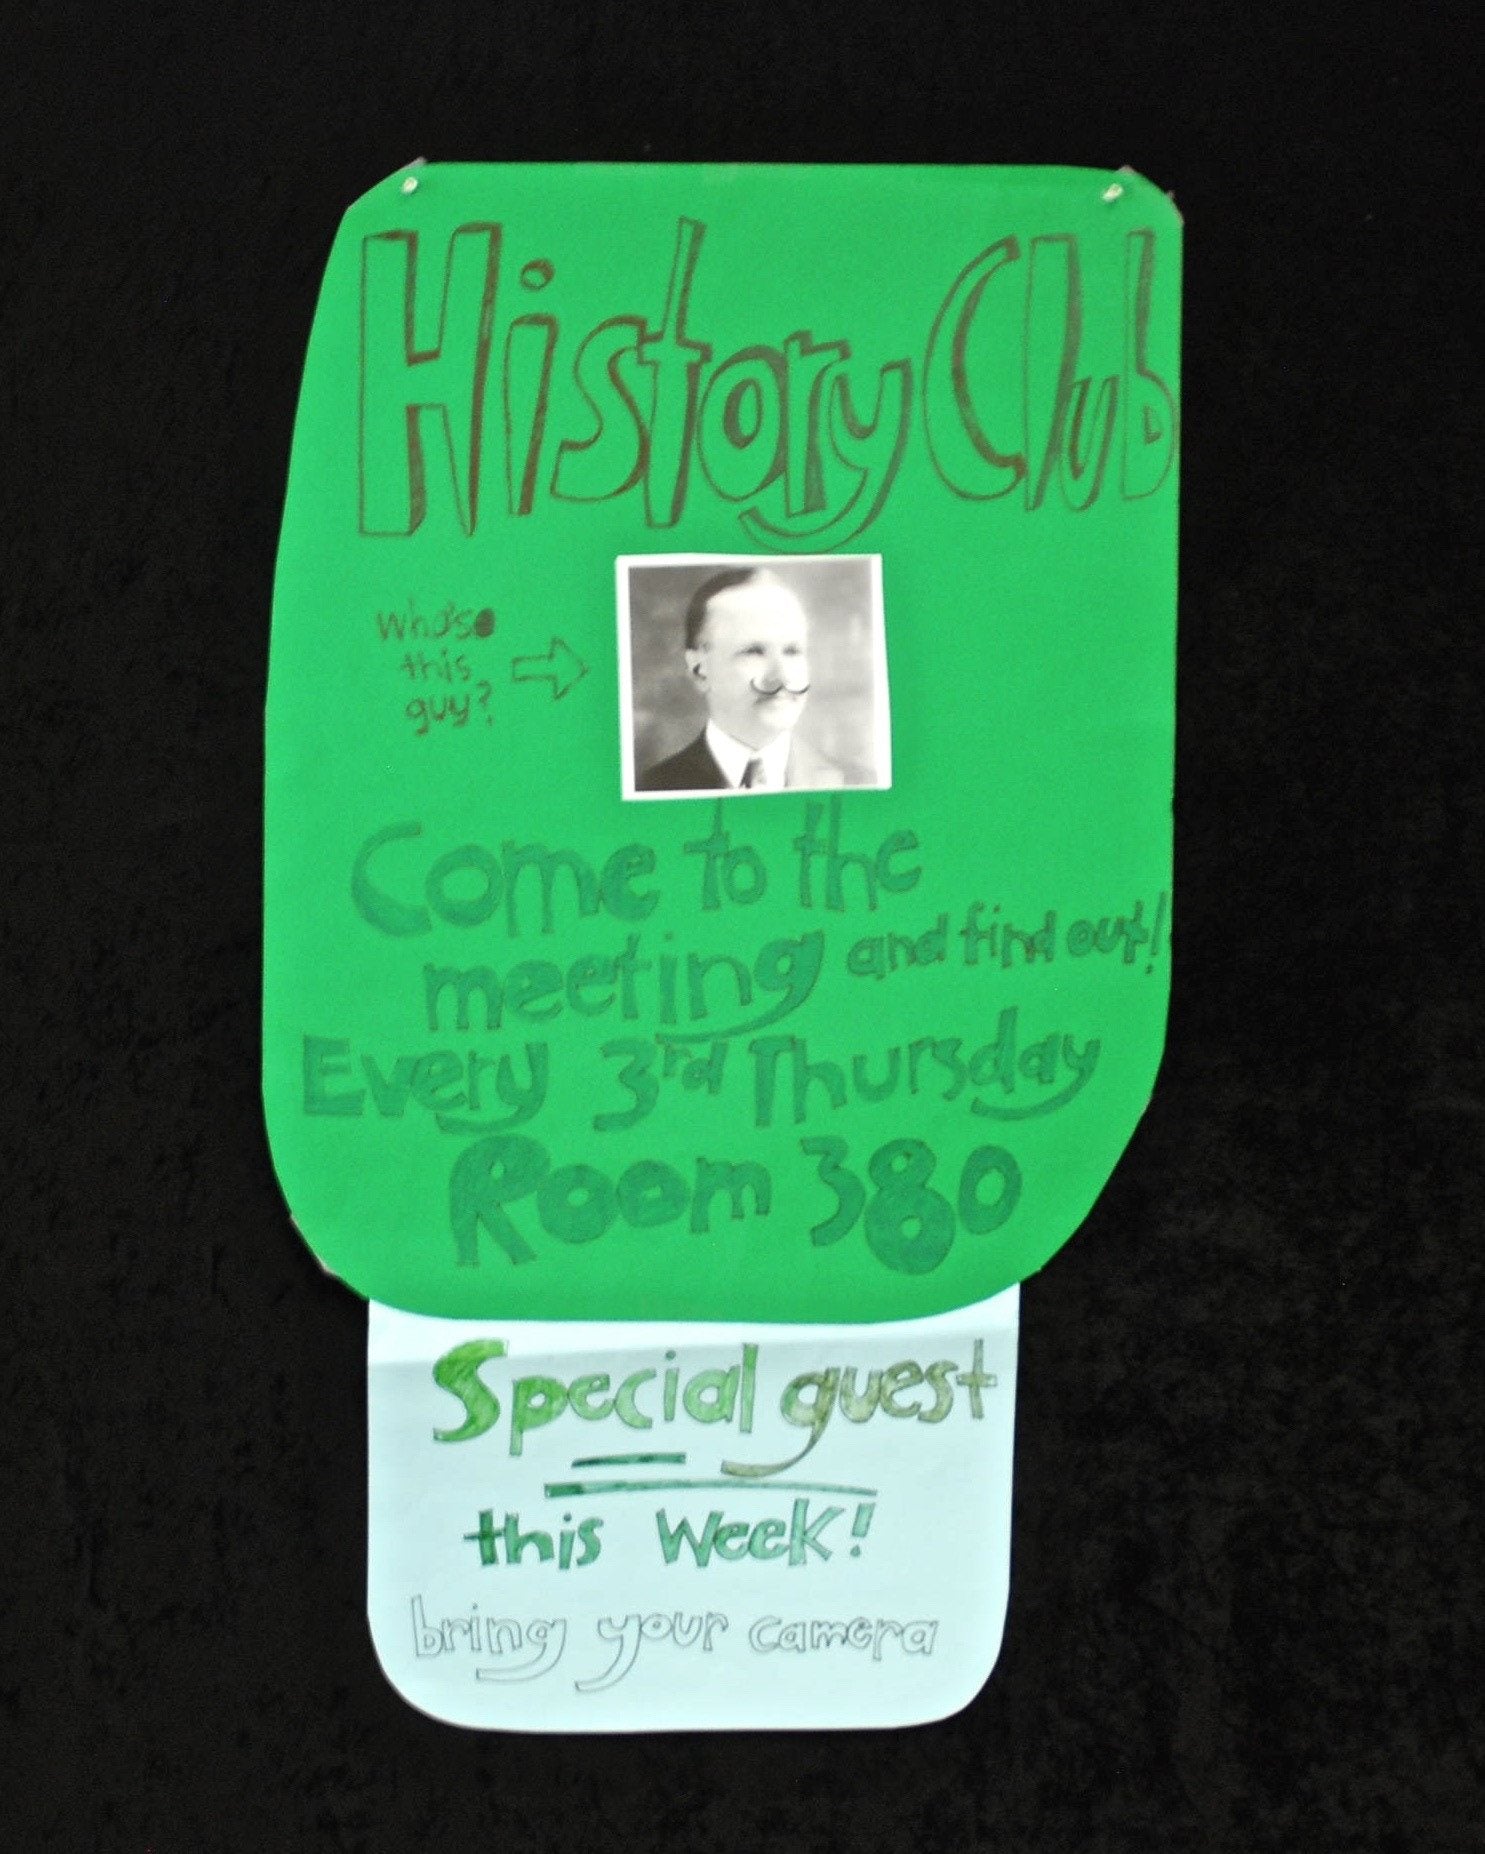 History Club
Who's
this
guy?
Come to the
meeting and find out!
Every 3rd Thursday
Room 380
Special guest
this Week!
bring your camera